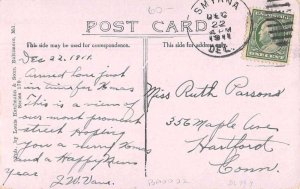 60-
SMYRNA
DEC
22
A M
1911
DEL.
POST CARD
This side may be used for correspondence.
This side is for the address.
Dec 22. 1911.
Arrived home first
in time for Xmas
This is a view of
our most prominent
street Hoping
you a merry Xmas
and a Happy New
Year
Miss Ruth Parsons
356 Maple Ave
Hartford
Conn.